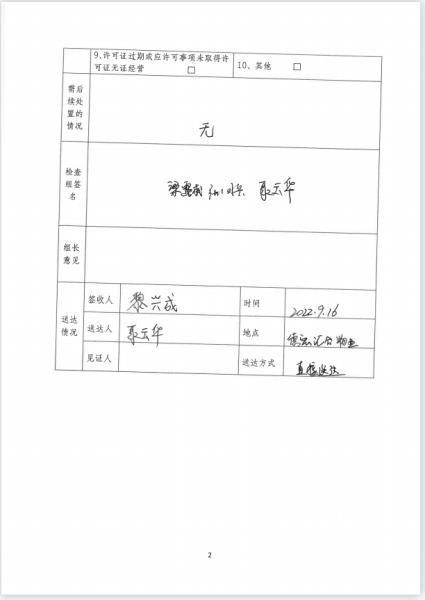 9、许可证过期或应许可事项未取得许
可证无证经营 □
10、其他 □
需后
续处
置的
情况
无
检查
组签
名
聂云华
组长
意见
送达
情况
签收人
黎兴成
时间
2022.9.16
送达人
聂云华
地点
物业
见证人
送达方式
直接送达
2